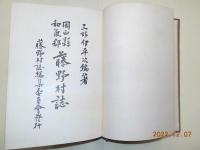 三村伊平次編著
岡山縣
和気郡
藤野村誌
藤野村誌編集委員會発行
2022.12.07